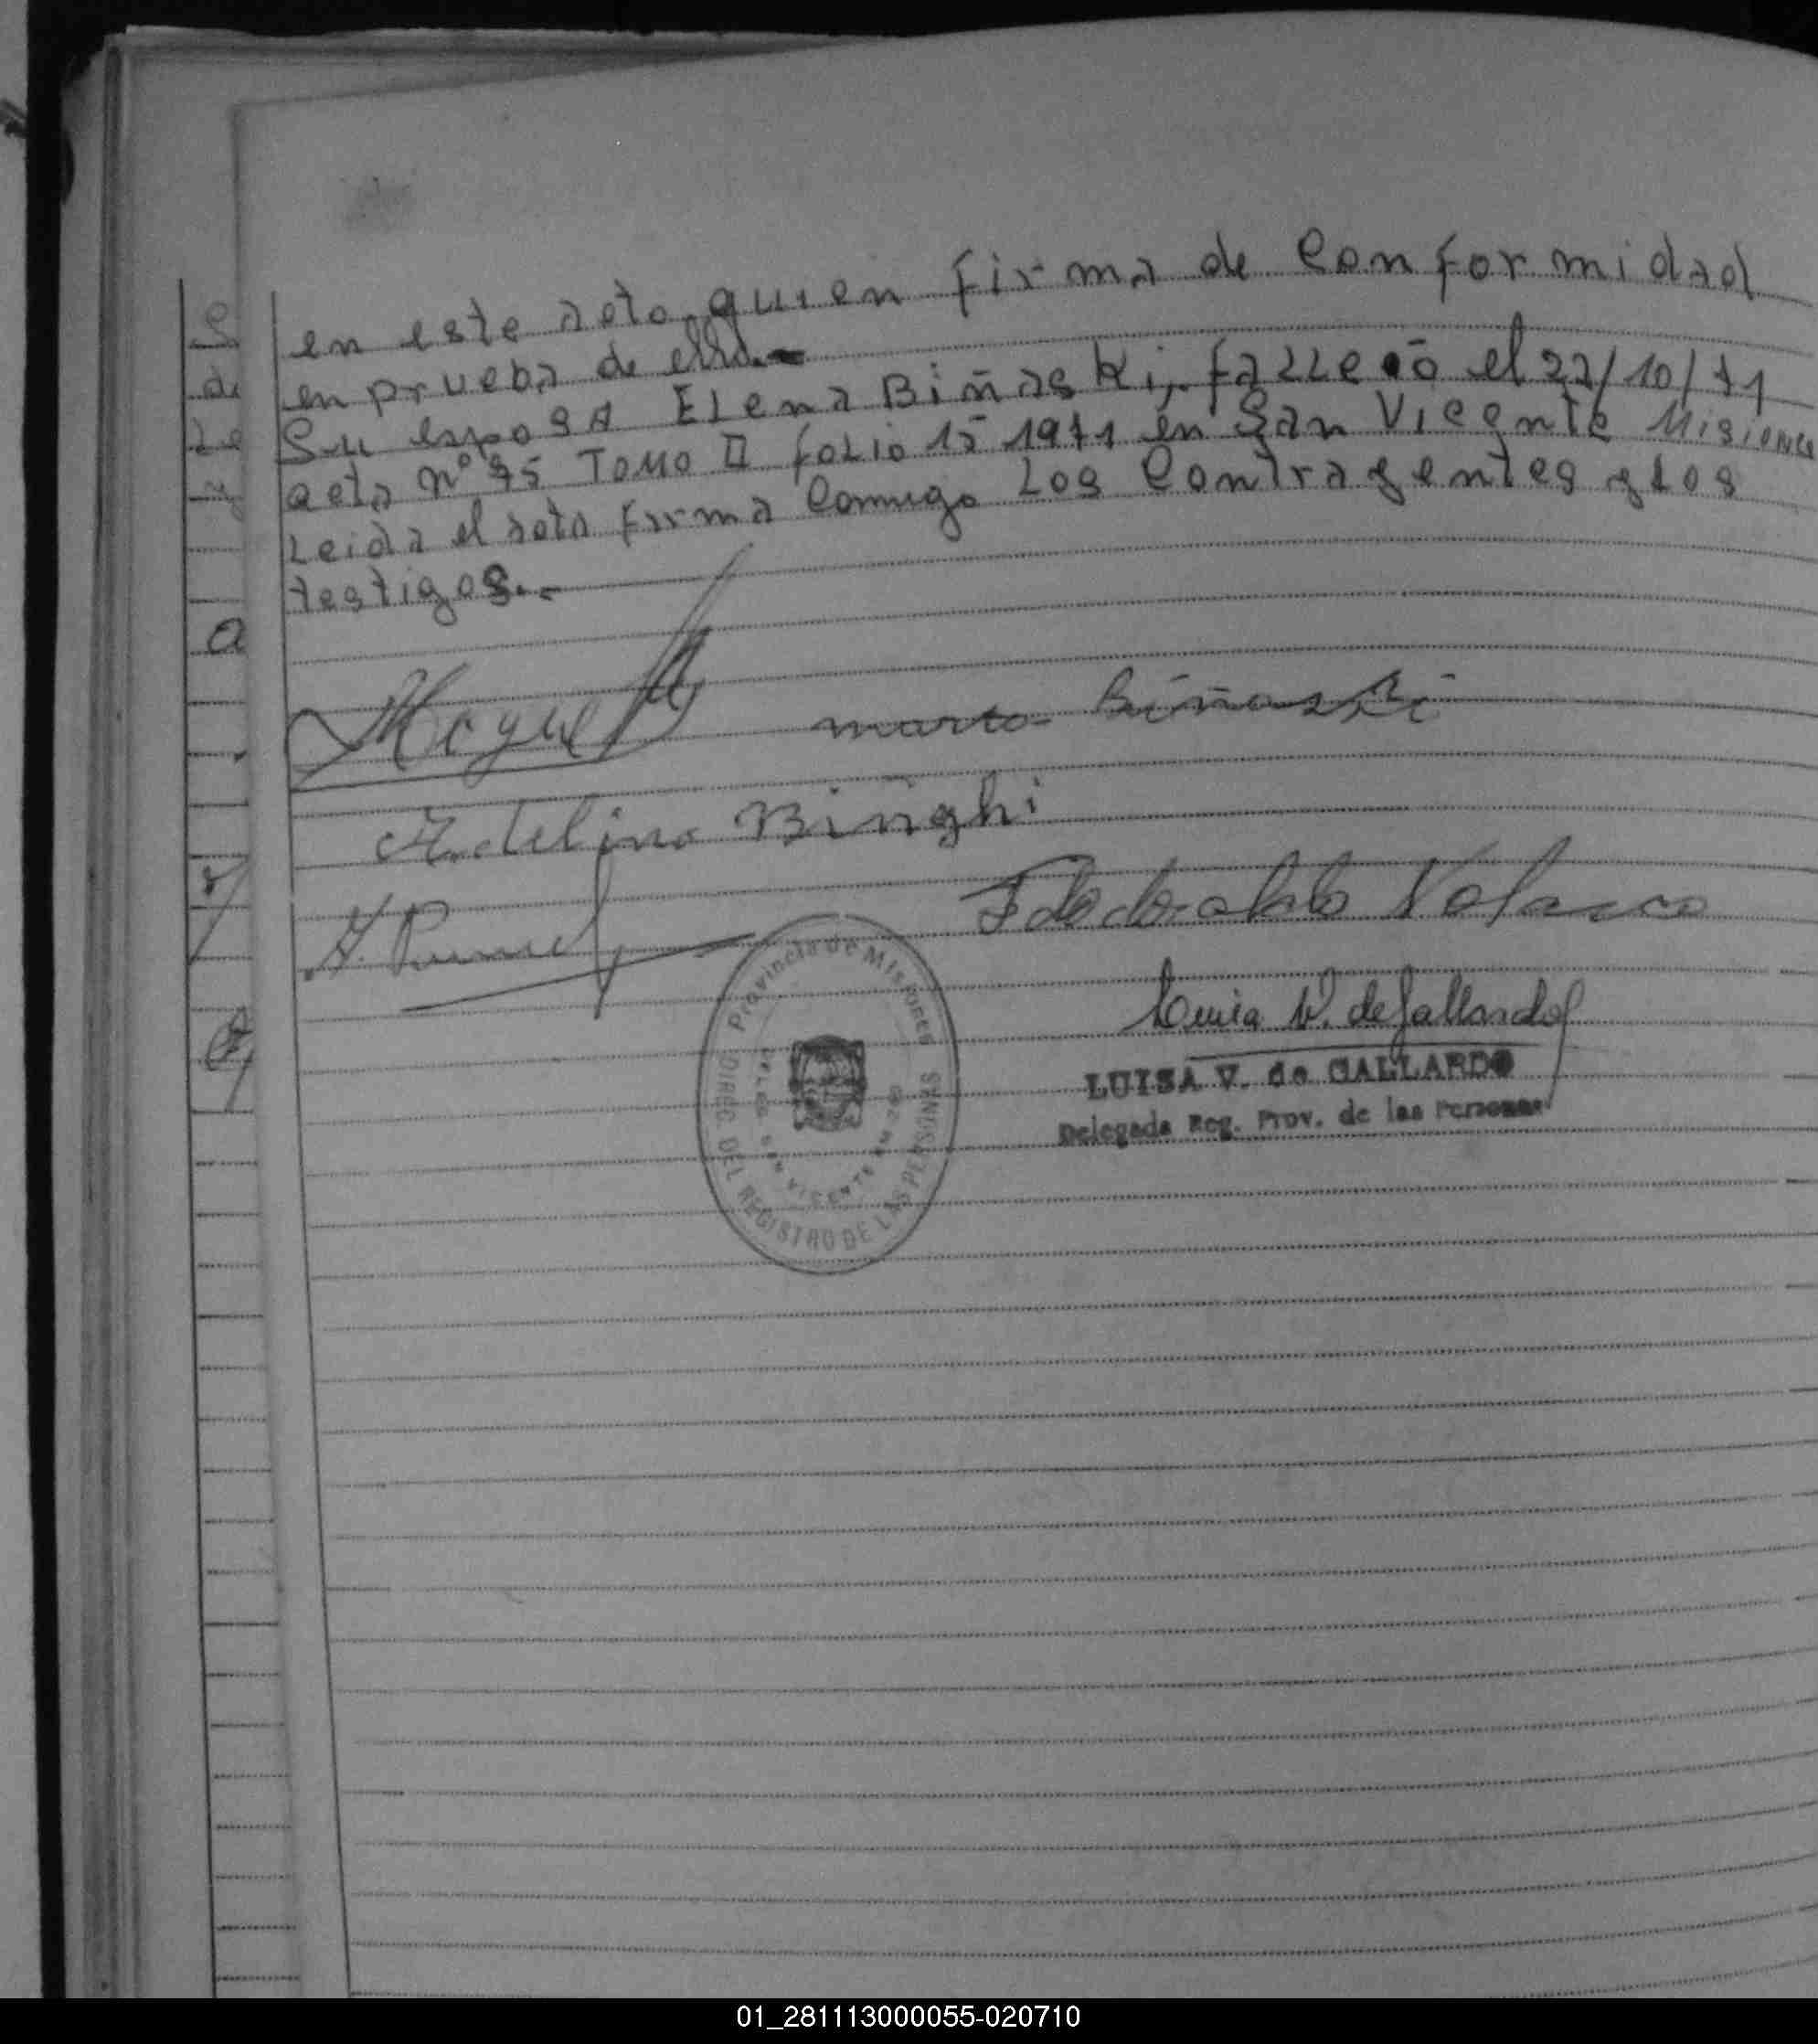 en este acto quien firma de conformidad
en prueba de ello.-
Su esposa Elena Biñaski, falleció el 27/10/71
acta nº 95 Tomo II folio 15 1971 en San Vicente Misiones
Leida el acta firma comigo Los Contragentes y Los
testigos.-
a
marta Biñaski
Adelina Binghi
Velasco
Luisa V. de Gallardo
LUISA V. de GALLARDO
Delegada Reg. Prov. de las Personas
Provincia de Misiones
DIREC. DEL REGISTRO DE LAS PERSONAS
SAN VICENTE
01_281113000055-020710